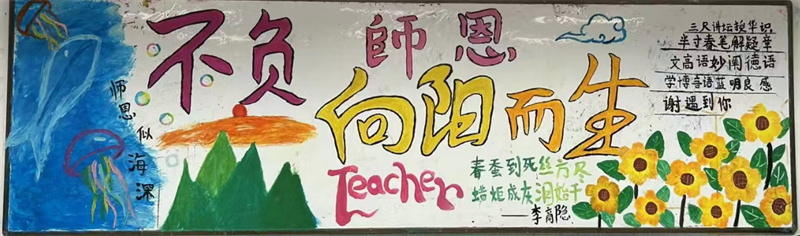 不负
師恩
向阳而生
师恩似海深
Teacher
春蚕到死丝方尽
蜡炬成灰泪始干
——李商隐
三尺讲坛
半寸春笔解疑章
文高语妙阐德语
感谢遇到你